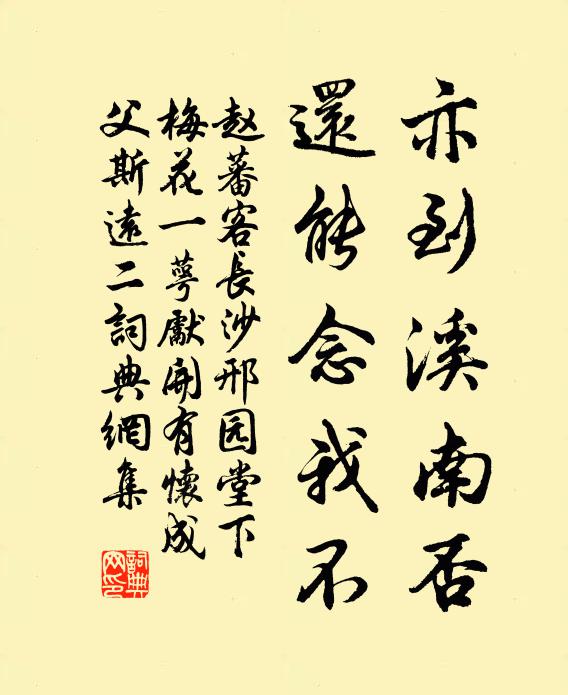 亦到溪南否
還能念我不
赵蕃客長沙邢园堂下
梅花一萼獻開有懷成
父斯遠二詞典網集
詞典
网印